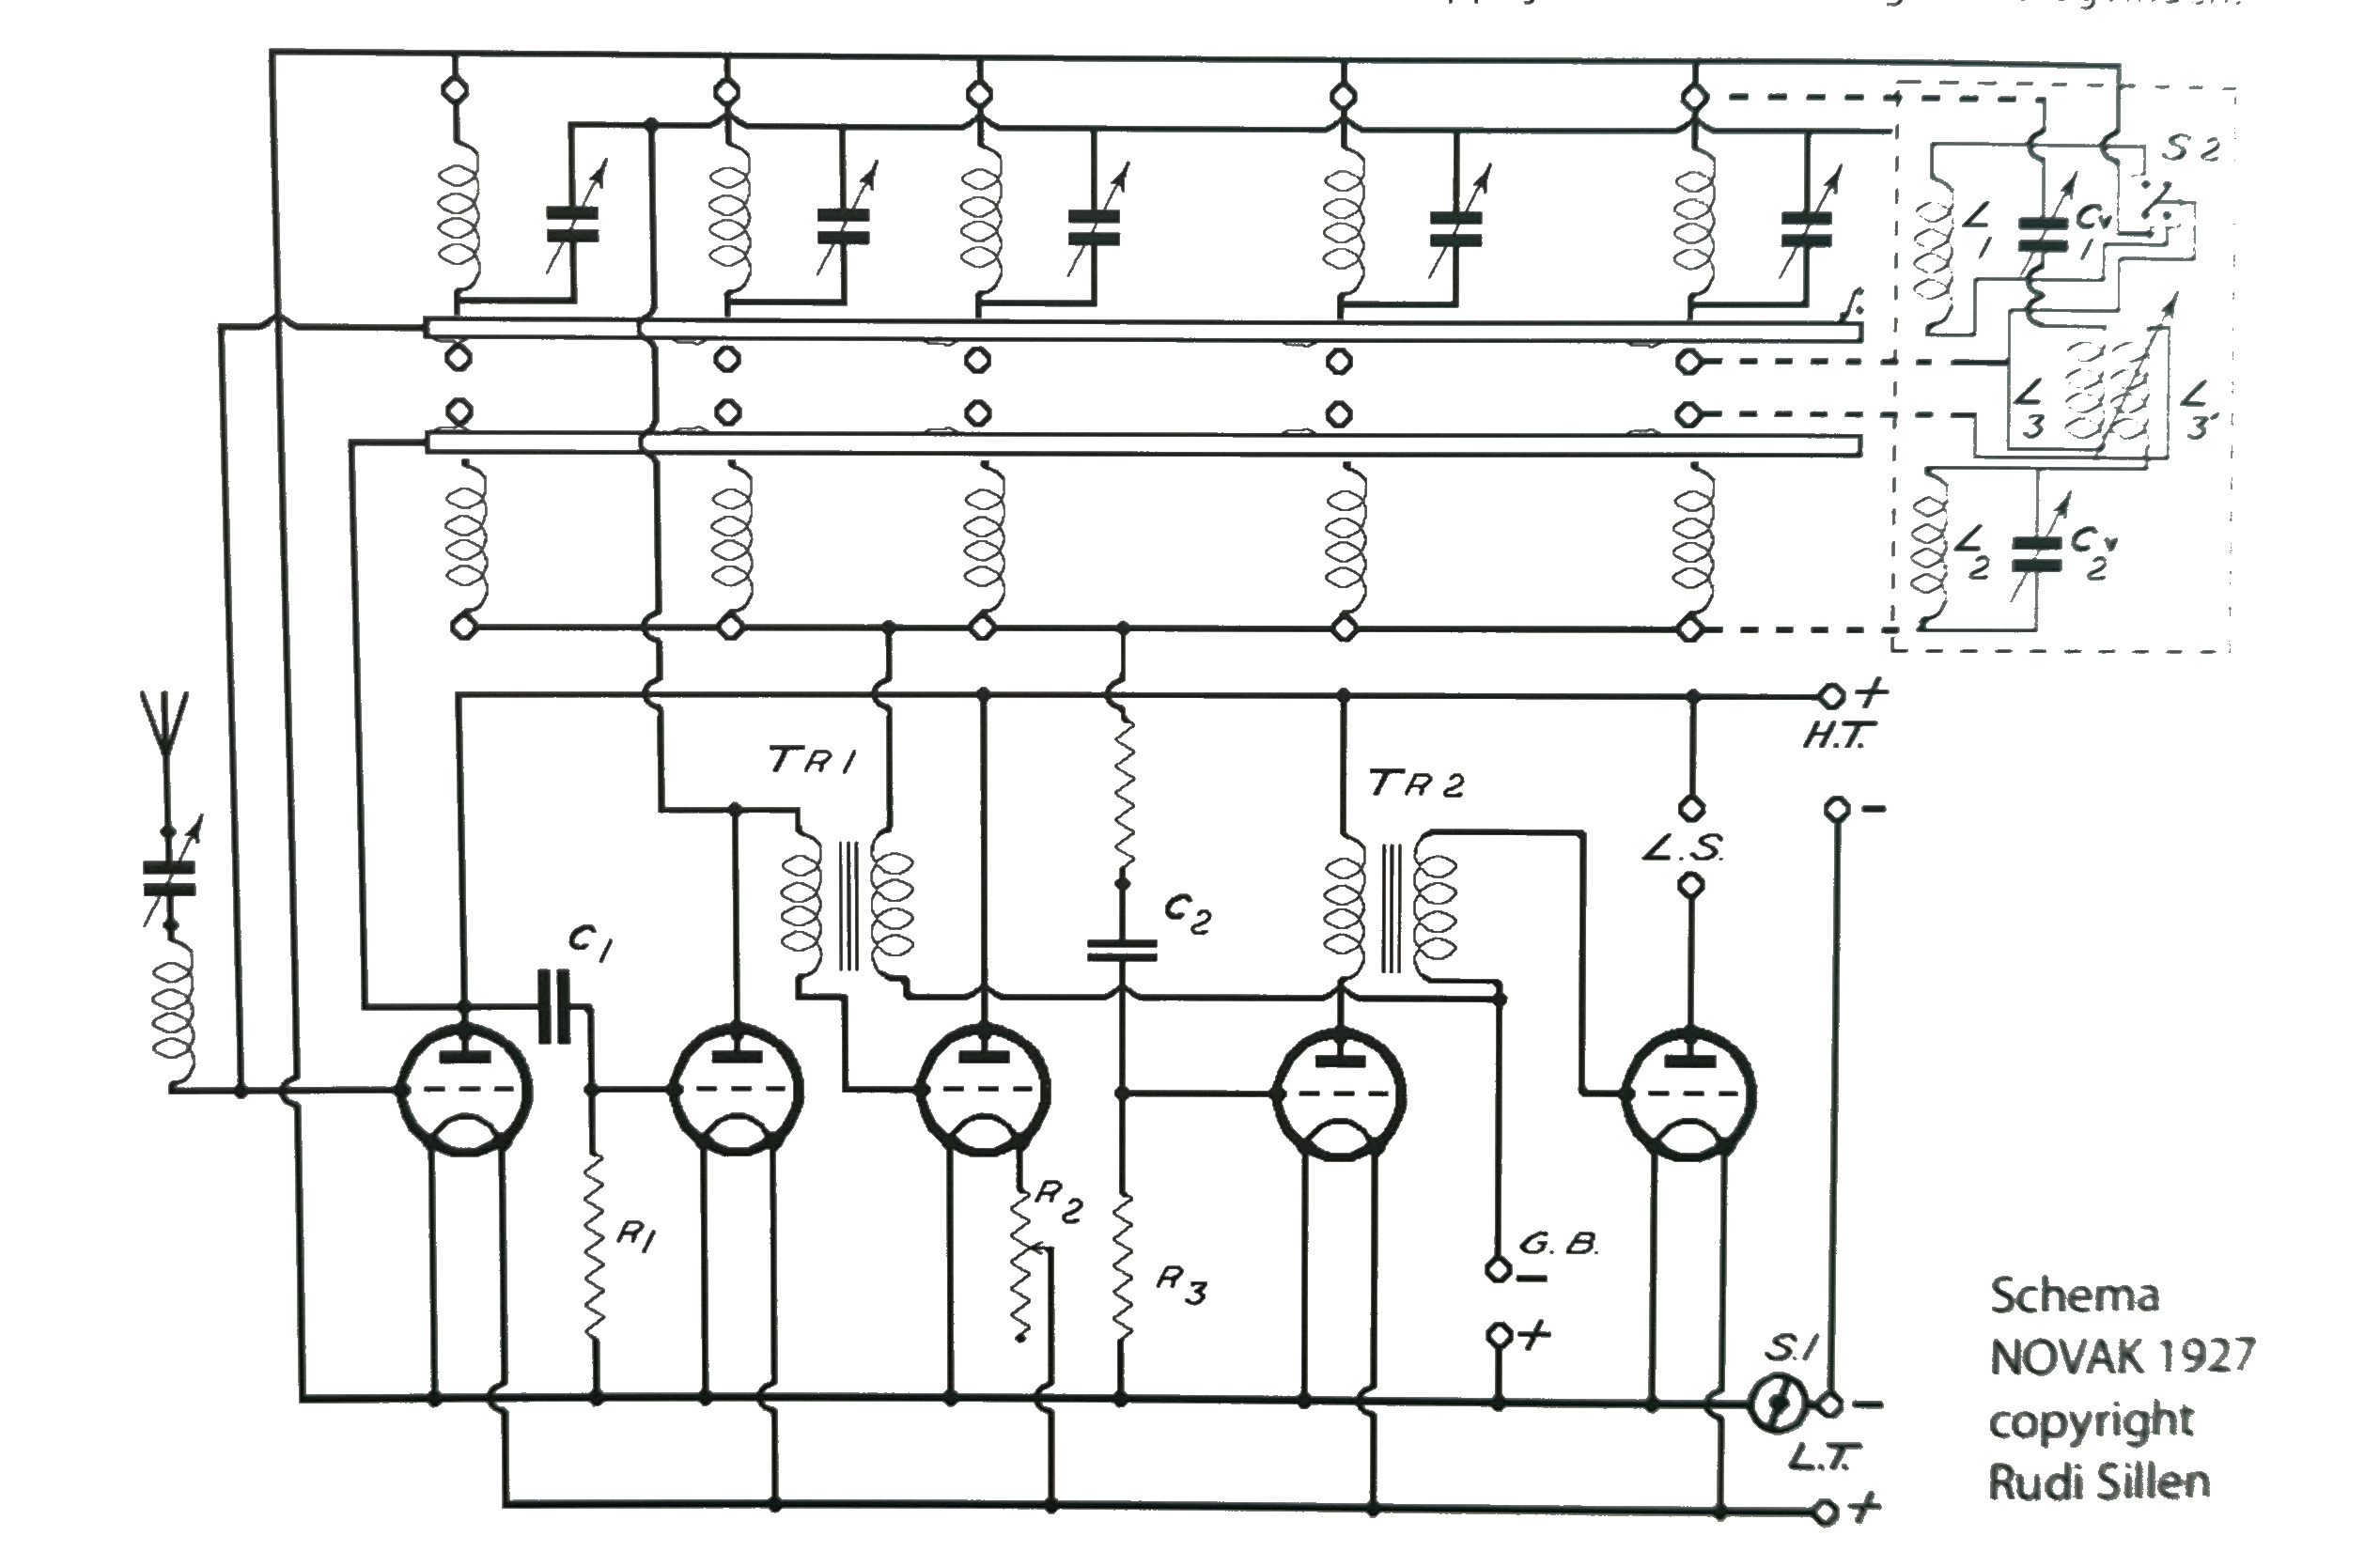 S2
L1
Cv1
L3
L3'
L2
Cv2
+
H.T.
TR1
TR2
-
L.S.
C2
C1
R2
R1
G.B.
-
R3
+
S.1
-
L.T.
+
Schema
NOVAK 1927
copyright
Rudi Sillen